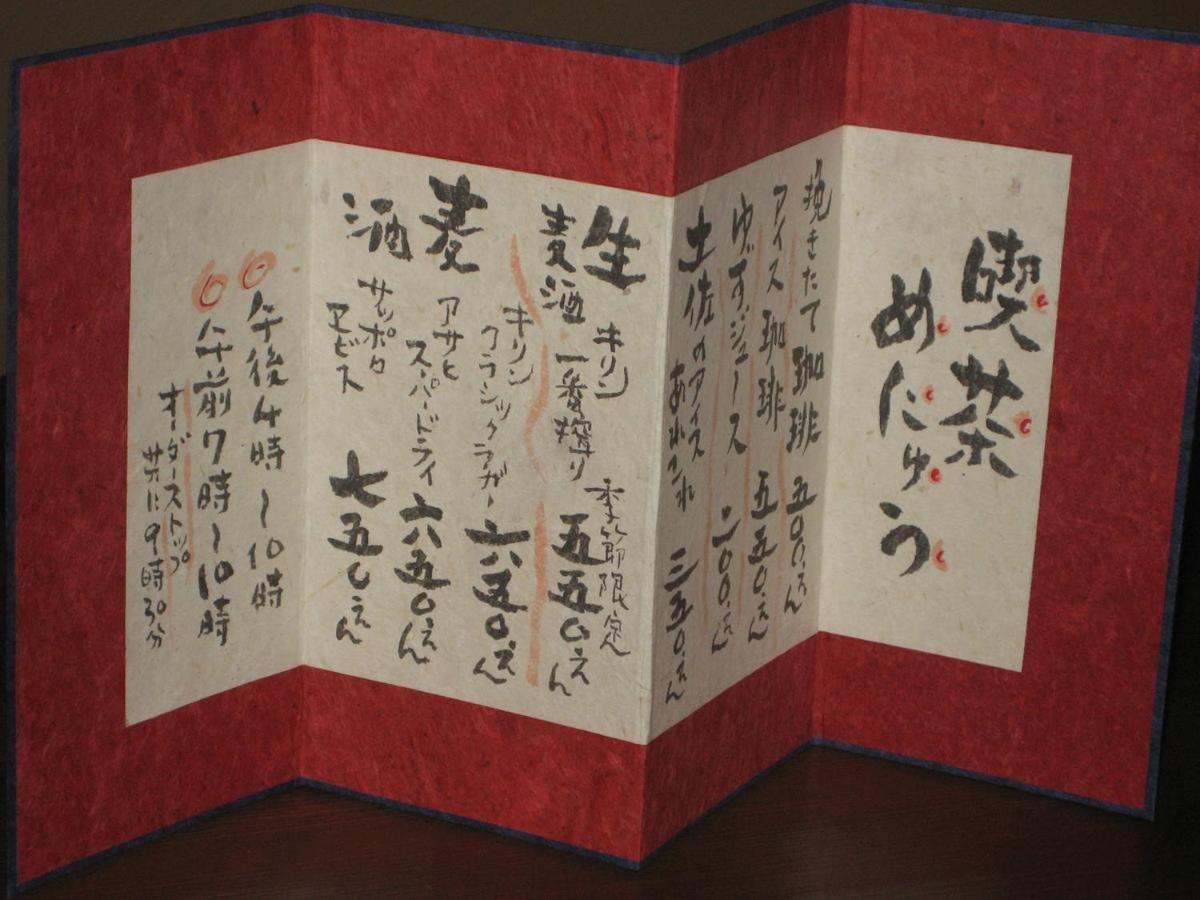 喫茶
めにゅう
挽きたて珈琲 五〇〇えん
アイス珈琲 五五〇えん
ゆずジュース 二〇〇えん
土佐のアイス あれこれ 三五〇えん
生麦酒 キリン 一番搾り 季節限定 五五〇えん
麦酒
キリン クラシックラガー 六五〇えん
アサヒ スーパードライ 六五〇えん
サッポロ エビス 七五〇えん
午後4時〜10時
午前7時〜10時
オーダーストップ
サ に9時30分